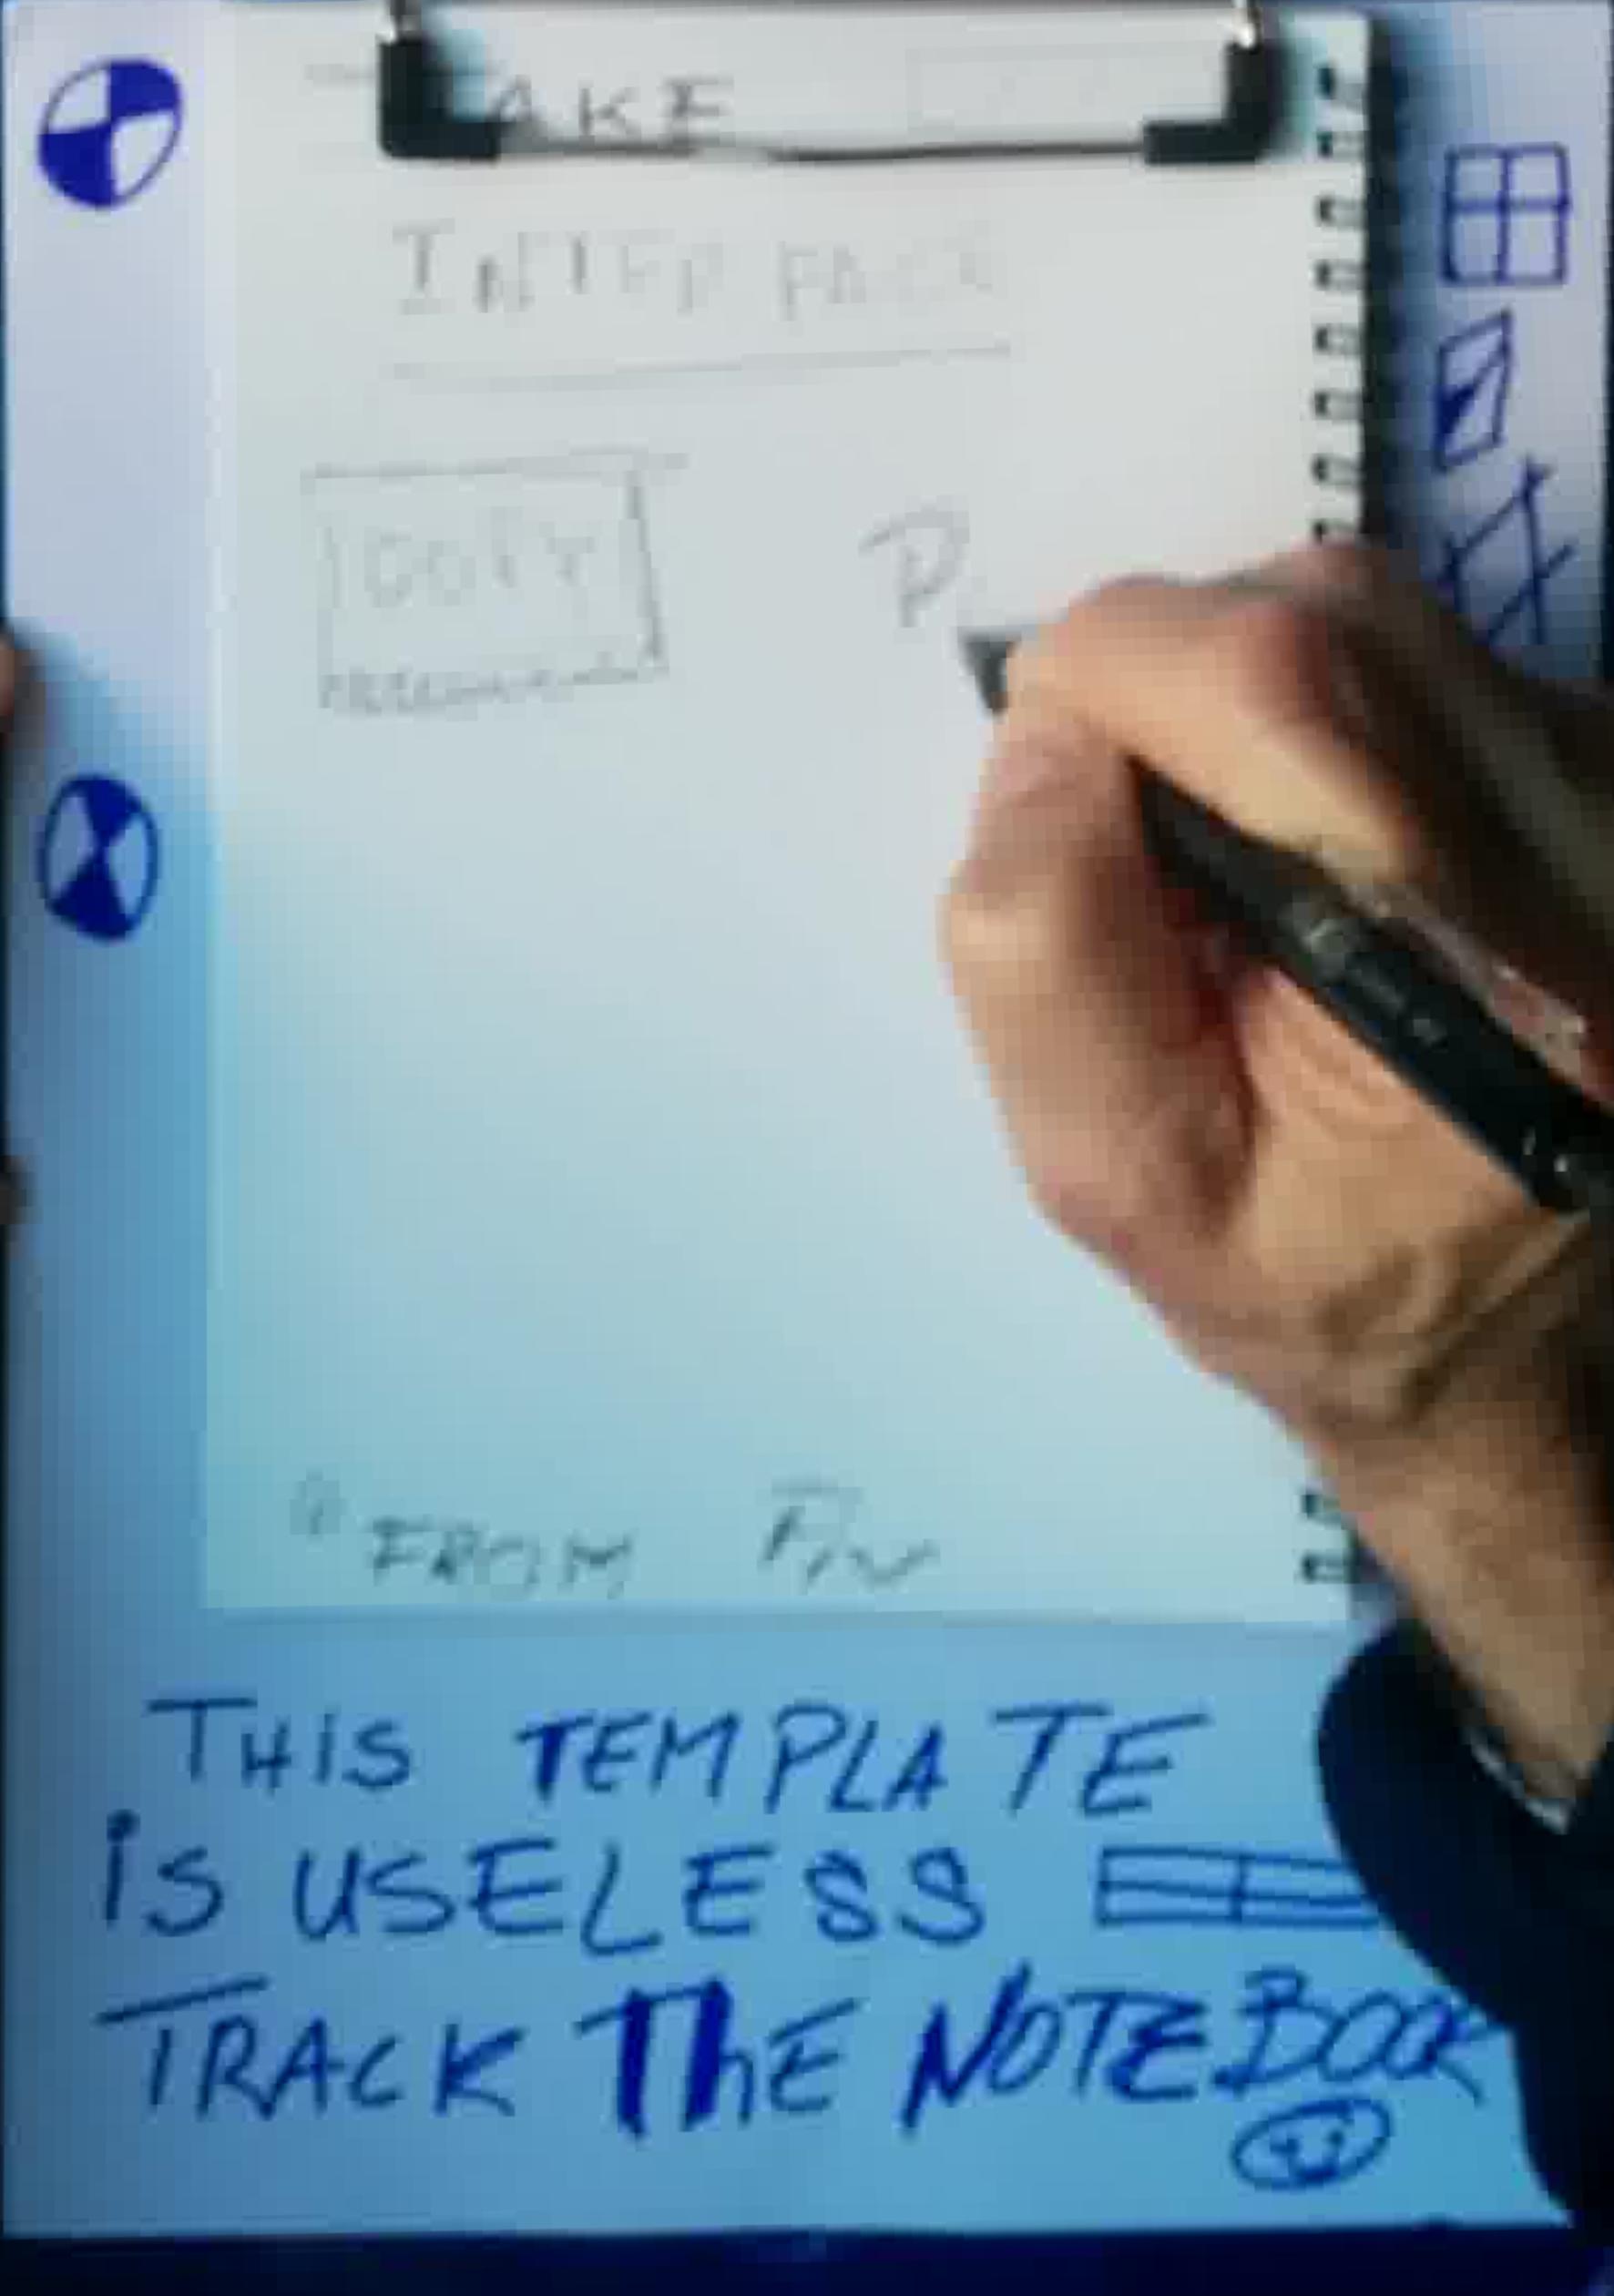 AKE
INTERFACE
COPY P
FROM
THIS TEMPLATE
iS USELESS
TRACK ThE NOTEBOOK